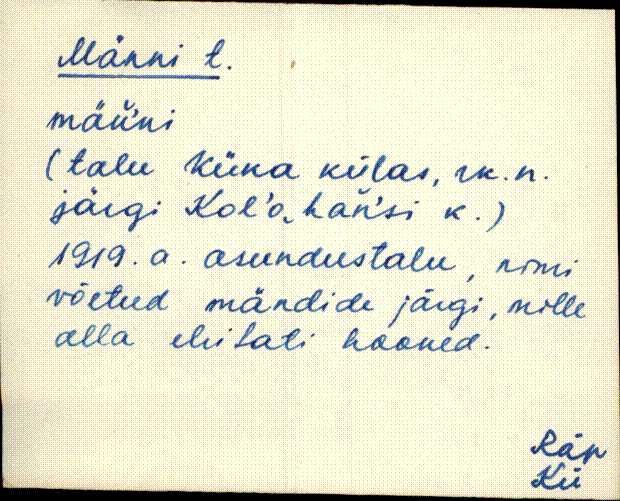 Männi t.
män̆'ni
(talu Küka külas, rk. n.
järgi Kol'o‿han̆'si k.)
1919. a. asundustalu, nimi
võetud mändide järgi, mille
alla ehitati hooned.
Räp
Kü